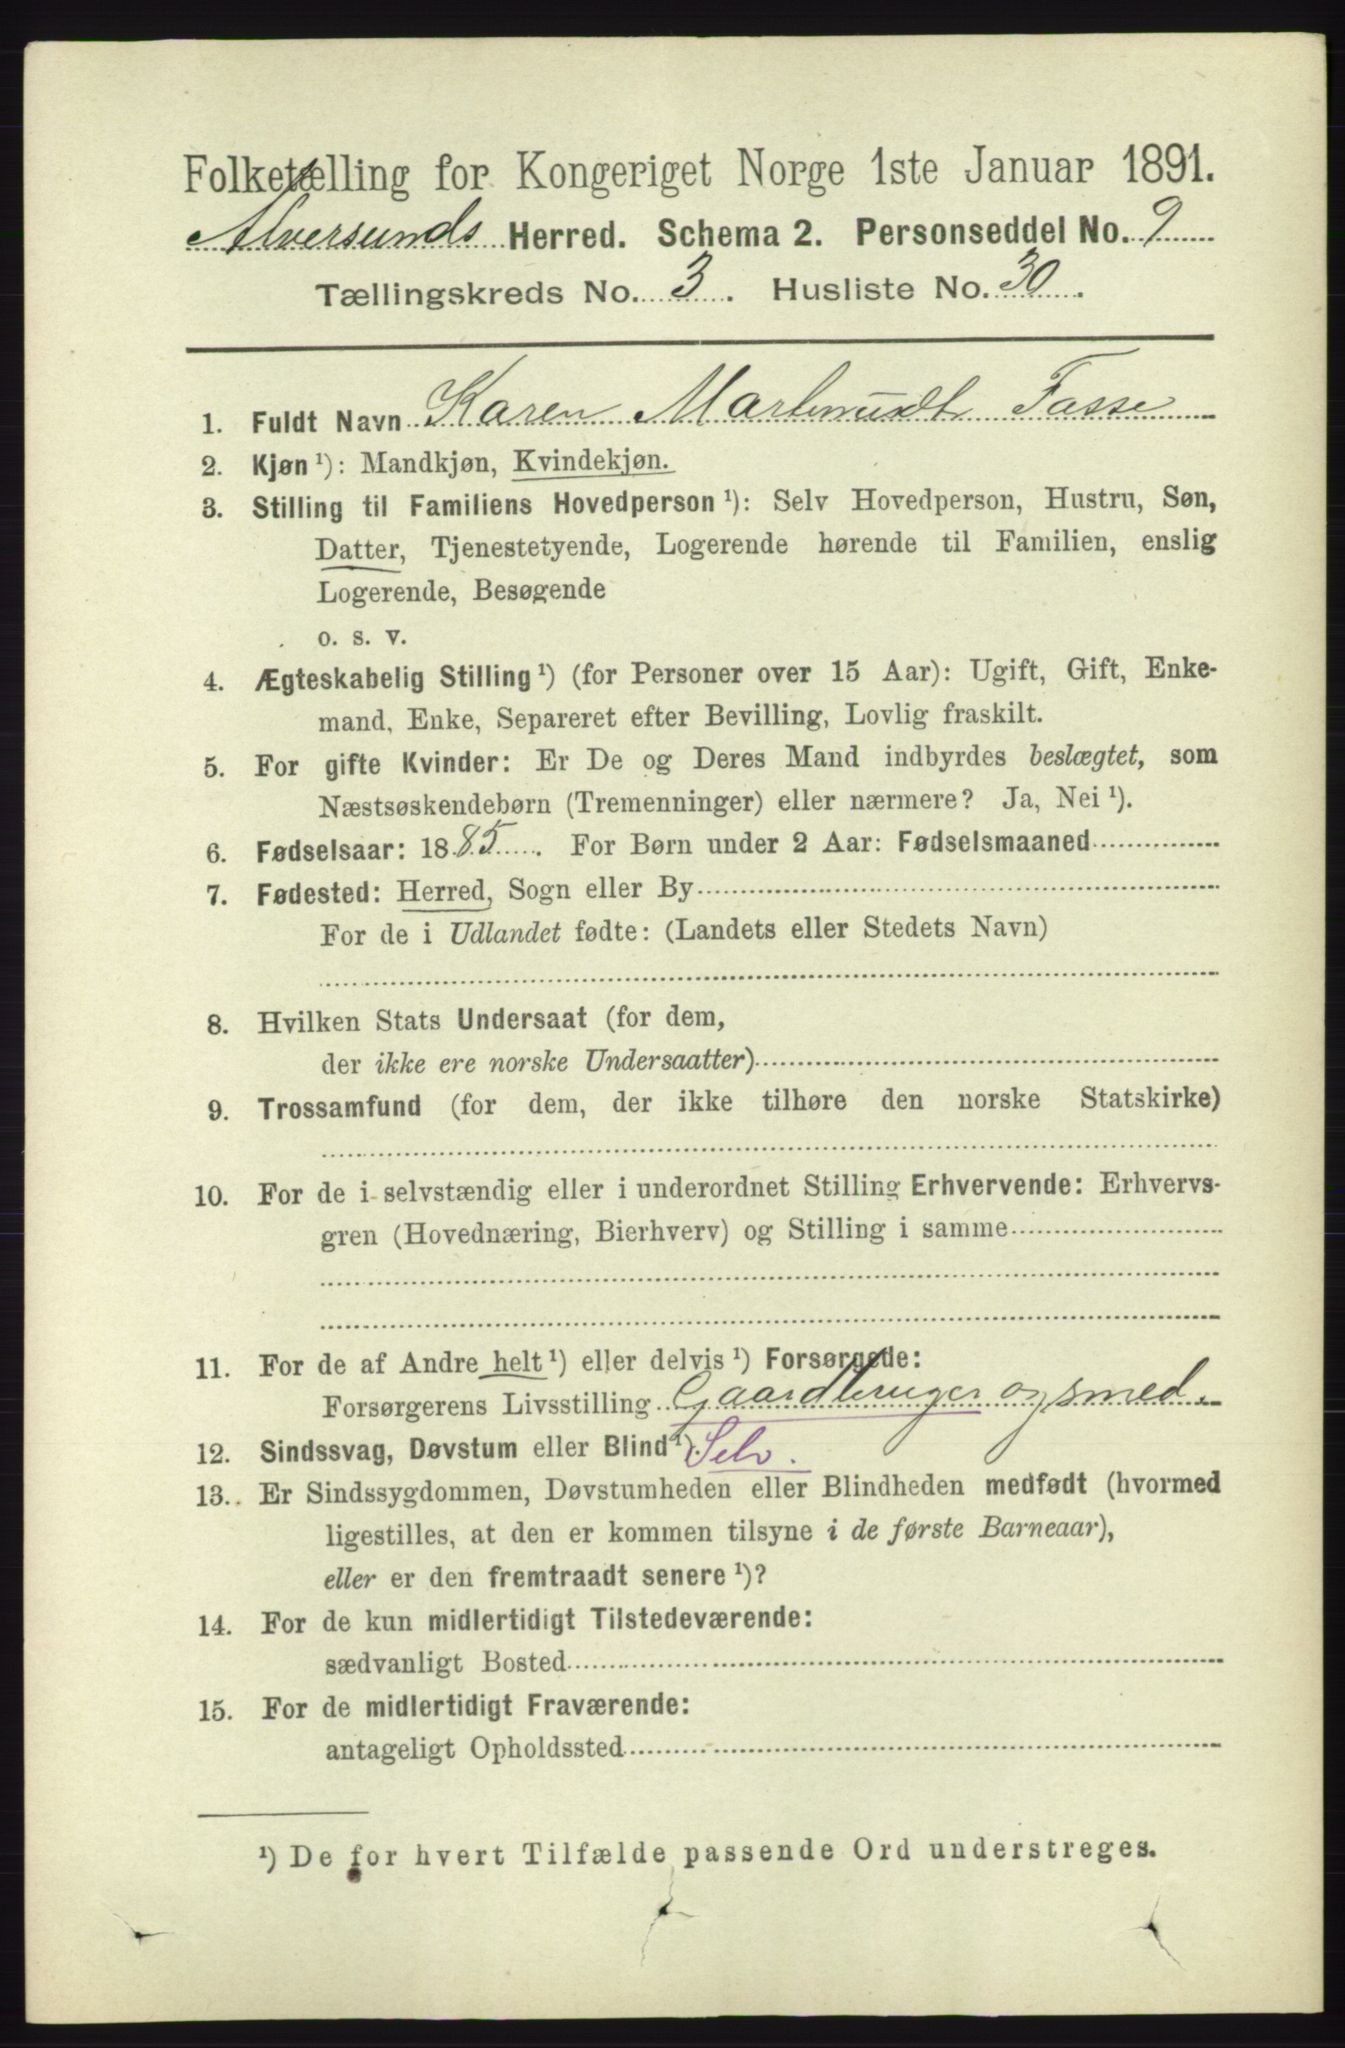 Folketælling for Kongeriget Norge 1ste Januar 1891.
Alversunds Herred. Schema 2. Personseddel No. 9
Tællingskreds No. 3. Husliste No. 30.
1. Fuldt Navn Karen Fasse
2. Kjøn ¹): Mandkjøn, Kvindekjøn.
3. Stilling til Familiens Hovedperson ¹): Selv Hovedperson, Hustru, Søn,
Datter, Tjenestetyende, Logerende hørende til Familien, enslig
Logerende, Besøgende
o. s. v.
4. Ægteskabelig Stilling ¹) (for Personer over 15 Aar): Ugift, Gift, Enke-
mand, Enke, Separeret efter Bevilling, Lovlig fraskilt.
5. For gifte Kvinder: Er De og Deres Mand indbyrdes beslægtet, som
Næstsøskendebørn (Tremenninger) eller nærmere? Ja, Nei ¹).
6. Fødselsaar: 1885. For Børn under 2 Aar: Fødselsmaaned
7. Fødested: Herred, Sogn eller By
For de i Udlandet fødte: (Landets eller Stedets Navn)
8. Hvilken Stats Undersaat (for dem,
der ikke ere norske Undersaatter)
9. Trossamfund (for dem, der ikke tilhøre den norske Statskirke)
10. For de i selvstændig eller i underordnet Stilling Erhvervende: Erhvervs-
gren (Hovednæring, Bierhverv) og Stilling i samme
11. For de af Andre helt ¹) eller delvis ¹) Forsørgede:
Forsørgerens Livsstilling Gaardbruger og smed.
12. Sindssvag, Døvstum eller Blind ¹). Selv.
13. Er Sindssygdommen, Døvstumheden eller Blindheden medfødt (hvormed
ligestilles, at den er kommen tilsyne i de første Barneaar),
eller er den fremtraadt senere ¹)?
14. For de kun midlertidigt Tilstedeværende:
sædvanligt Bosted
15. For de midlertidigt Fraværende:
antageligt Opholdssted
¹) De for hvert Tilfælde passende Ord understreges.